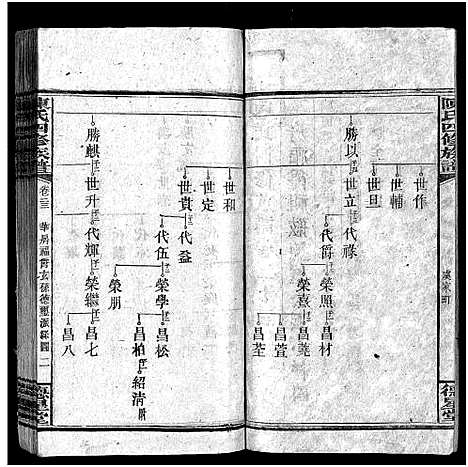 陳氏四修族譜
德星堂
世作
世輔
世旦
勝以 世立 代祿
代爵 榮照 昌材
榮熹 昌萱
昌荃
世和
世定
世貴 代益
代伍 榮學 昌松
昌柏 紹清
榮朋
勝麒 世升 代輝 榮繼 昌七
昌八
陳氏四修族譜
卷三
德星堂